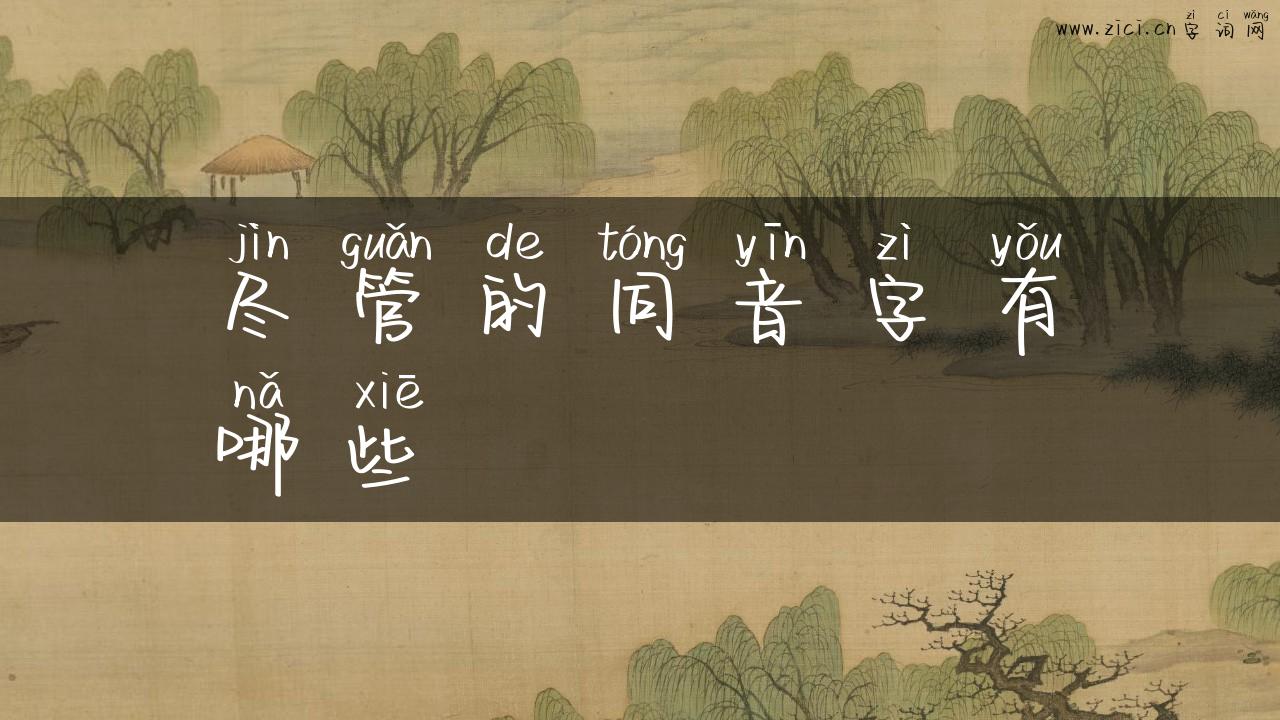 zì cí wǎng
www.zici.cn 字词网
jìn guǎn de tóng yīn zì yǒu
尽管的同音字有
nǎ xiē
哪些